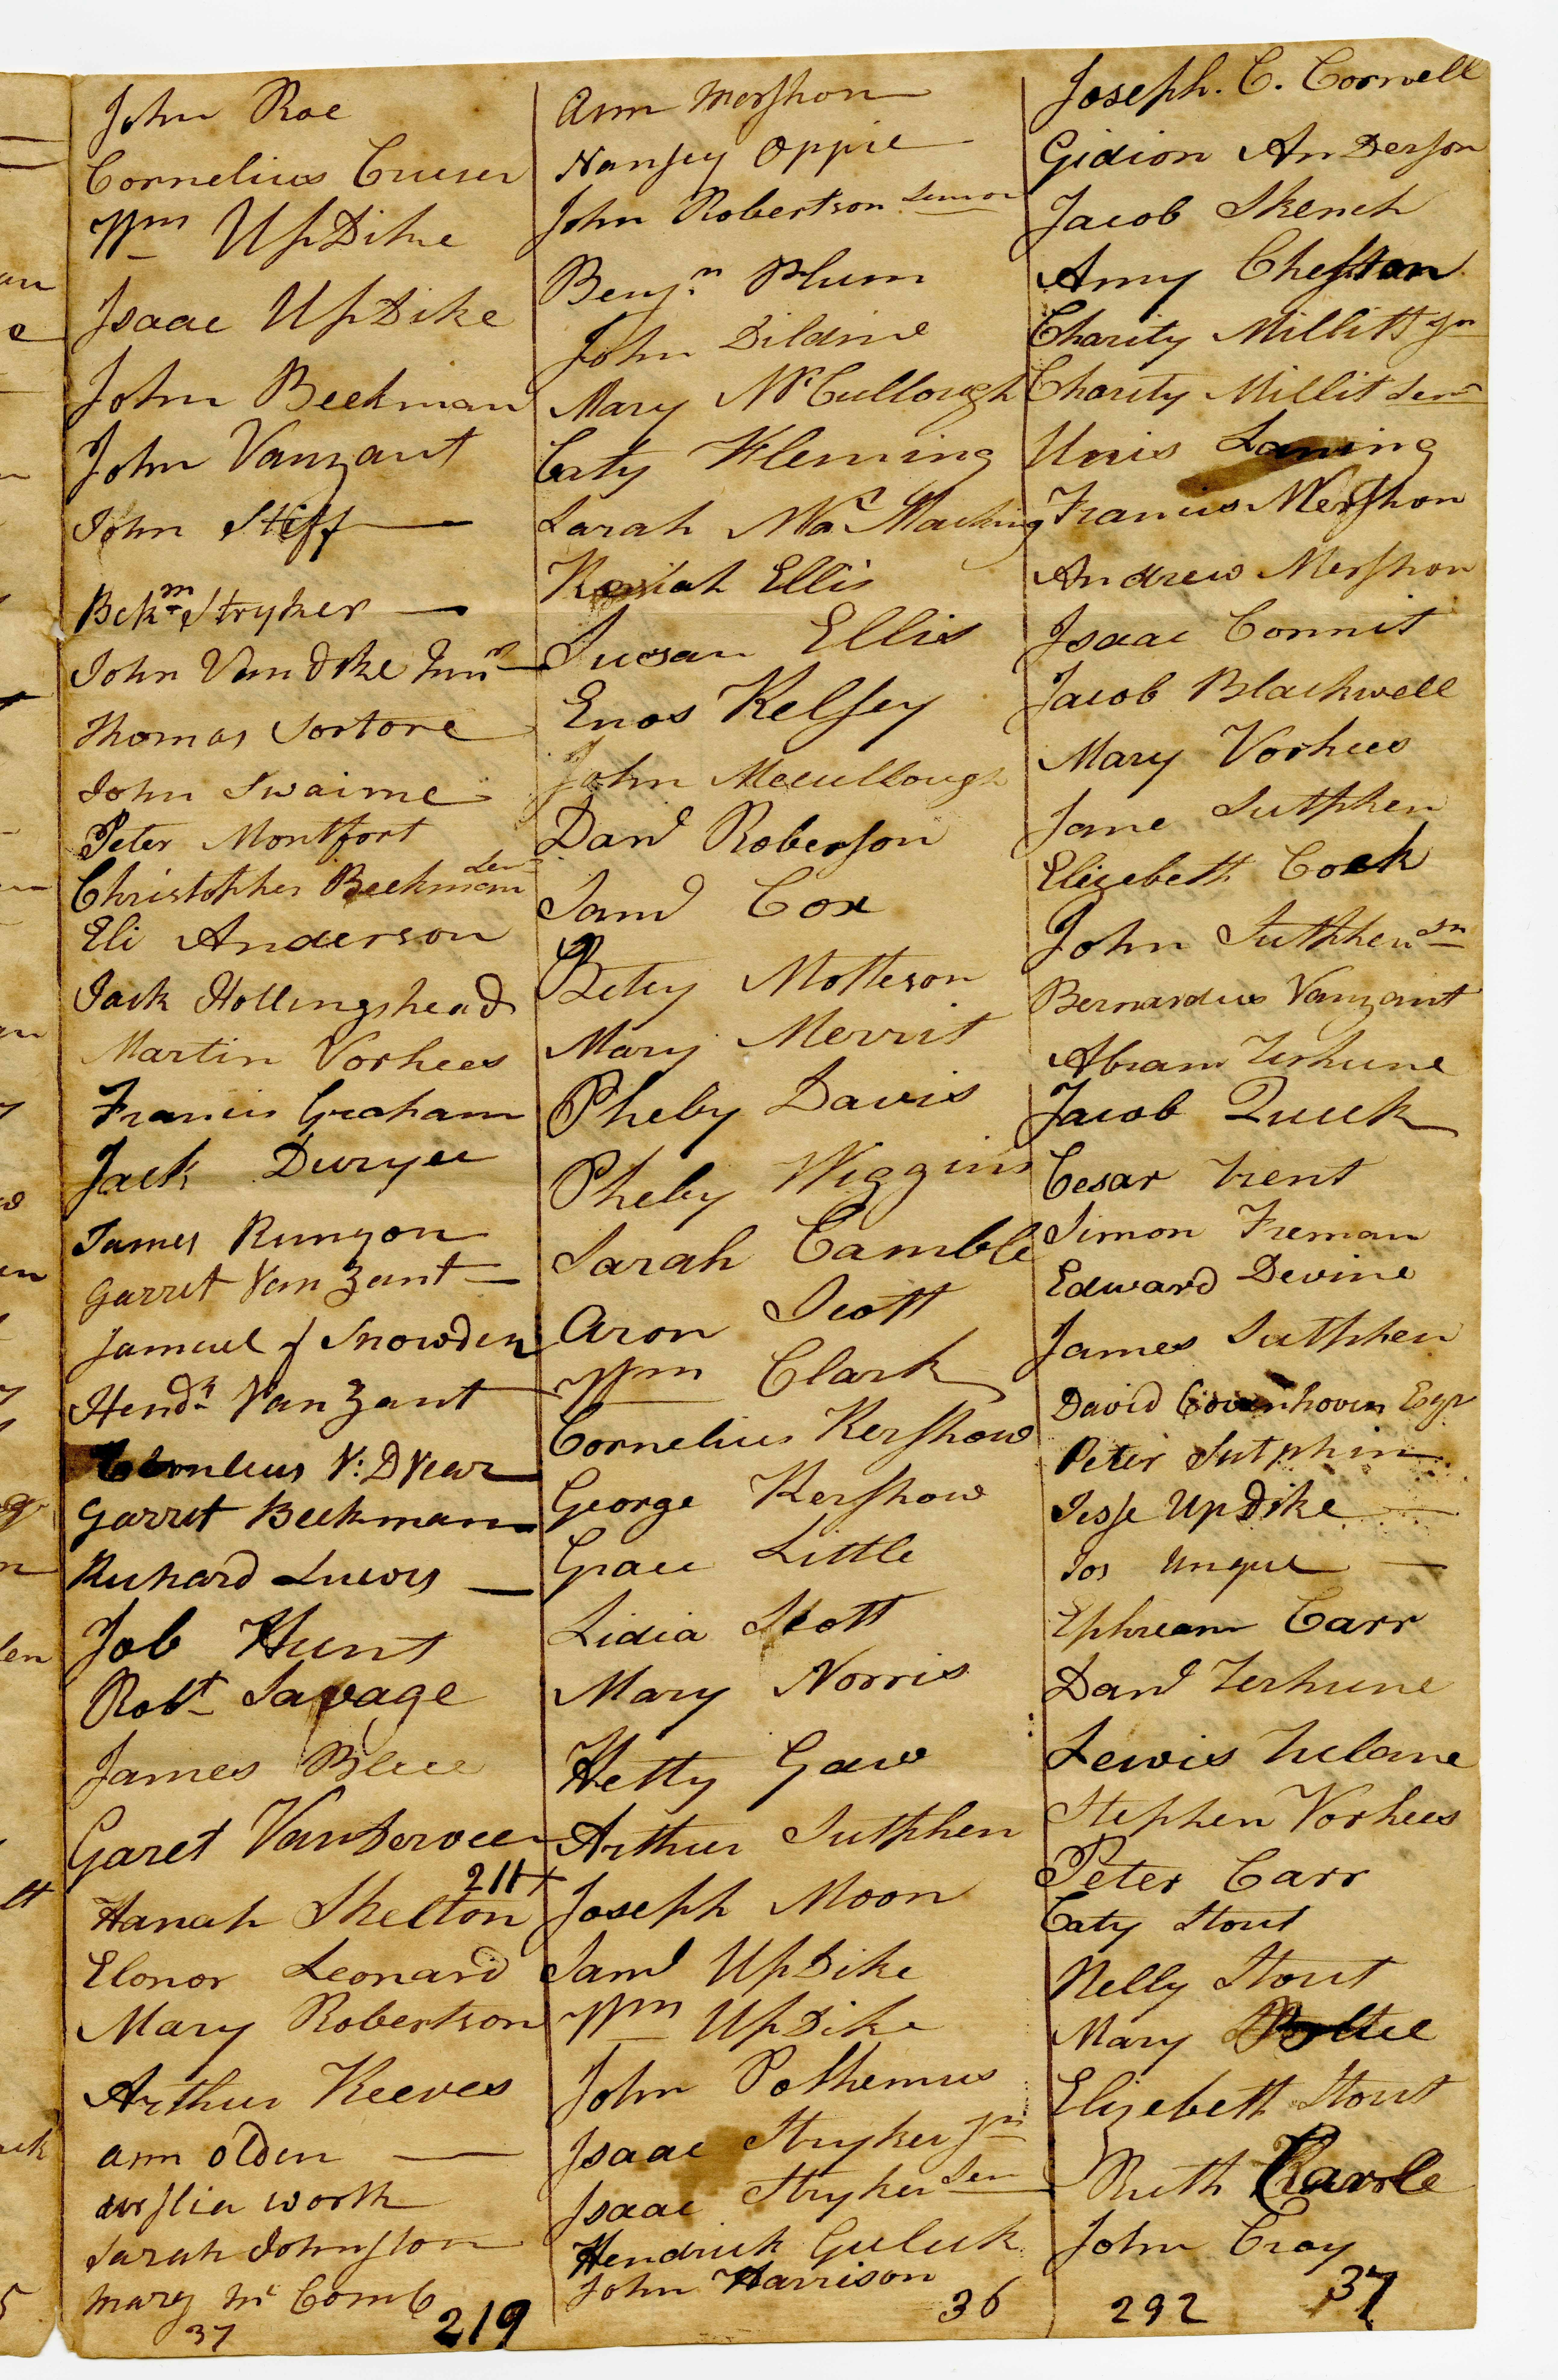 John Roe
Cornelius Cruser
Wm UpDike
Isaac UpDike
John Beekman
John Vanzant
John Stiff
Bekm Stryker
John Van dike Junr
Thomas Sortore
John Swaime
Peter Montfort
Christopher Beekman Sen
Eli Anderson
Jack Hollingshead
Martin Vorhees
Francis Graham
Jack Duryee
James Runyon
Garret Van Zant
Samuel Snowden
Hendk Van Zant
V: D Vear
Garret Beekman
Richard Lucors
Job Hunt
Robt Savage
James Blue
Garet VanDerveer
211
Hanah Skelton
Elonor Leonard
Mary Robertson
Arthur Reeves
ann olden
worth
Sarah Johnston
Mary Mc Comb
37 219
Ann Mershon
Nansey Oppie
John Robertson Senior
Benjn Plum
John Dildine
Mary McCullough
Caty Fleming
Sarah
Keziah Ellis
Susan Ellis
Enos Kelsey
John Mccullough
Danl Roberson
Saml Cox
Betsy Motteson
Mary Merrit
Pheby Davis
Pheby Wiggins
Sarah Camble
Aron Scott
Wm Clark
Cornelius Kershow
George Kershow
Grace Little
Lidia Scott
Mary Norris
Hetty Gaw
Arthur Sutphen
Joseph Moon
Saml UpDike
Wm UpDike
John Polhemus
Isaac Stryker Jn
Isaac Stryker Sen
Hendrick Guluk
John Harrison
36
Joseph. C. Cornell
Gidion AnDerson
Jacob Skench
Amy Cheston
Charity Millitt Jn
Charity Millit Senr
Unis Laning
Francis Mershon
Andrew Mershon
Isaac Connit
Jacob Blackwell
Mary Vorhees
Jane Sutphen
Elizebeth Cock
John Sutphen Jn
Bernardus Vanzant
Abram Terhune
Jacob Quick
Cesar Trent
Simon Freman
Edward Devine
James Sutphen
David Covenhoven Esqr
Peter Sutphin
Jesse UpDike
Jos Unque
Ephream Carr
Danl Terhune
Lewis Tulane
Stephen Vorhees
Peter Carr
Caty Stout
Nelly Stout
Mary
Elizebeth Stout
Ruth Carole
John Cray
292 37